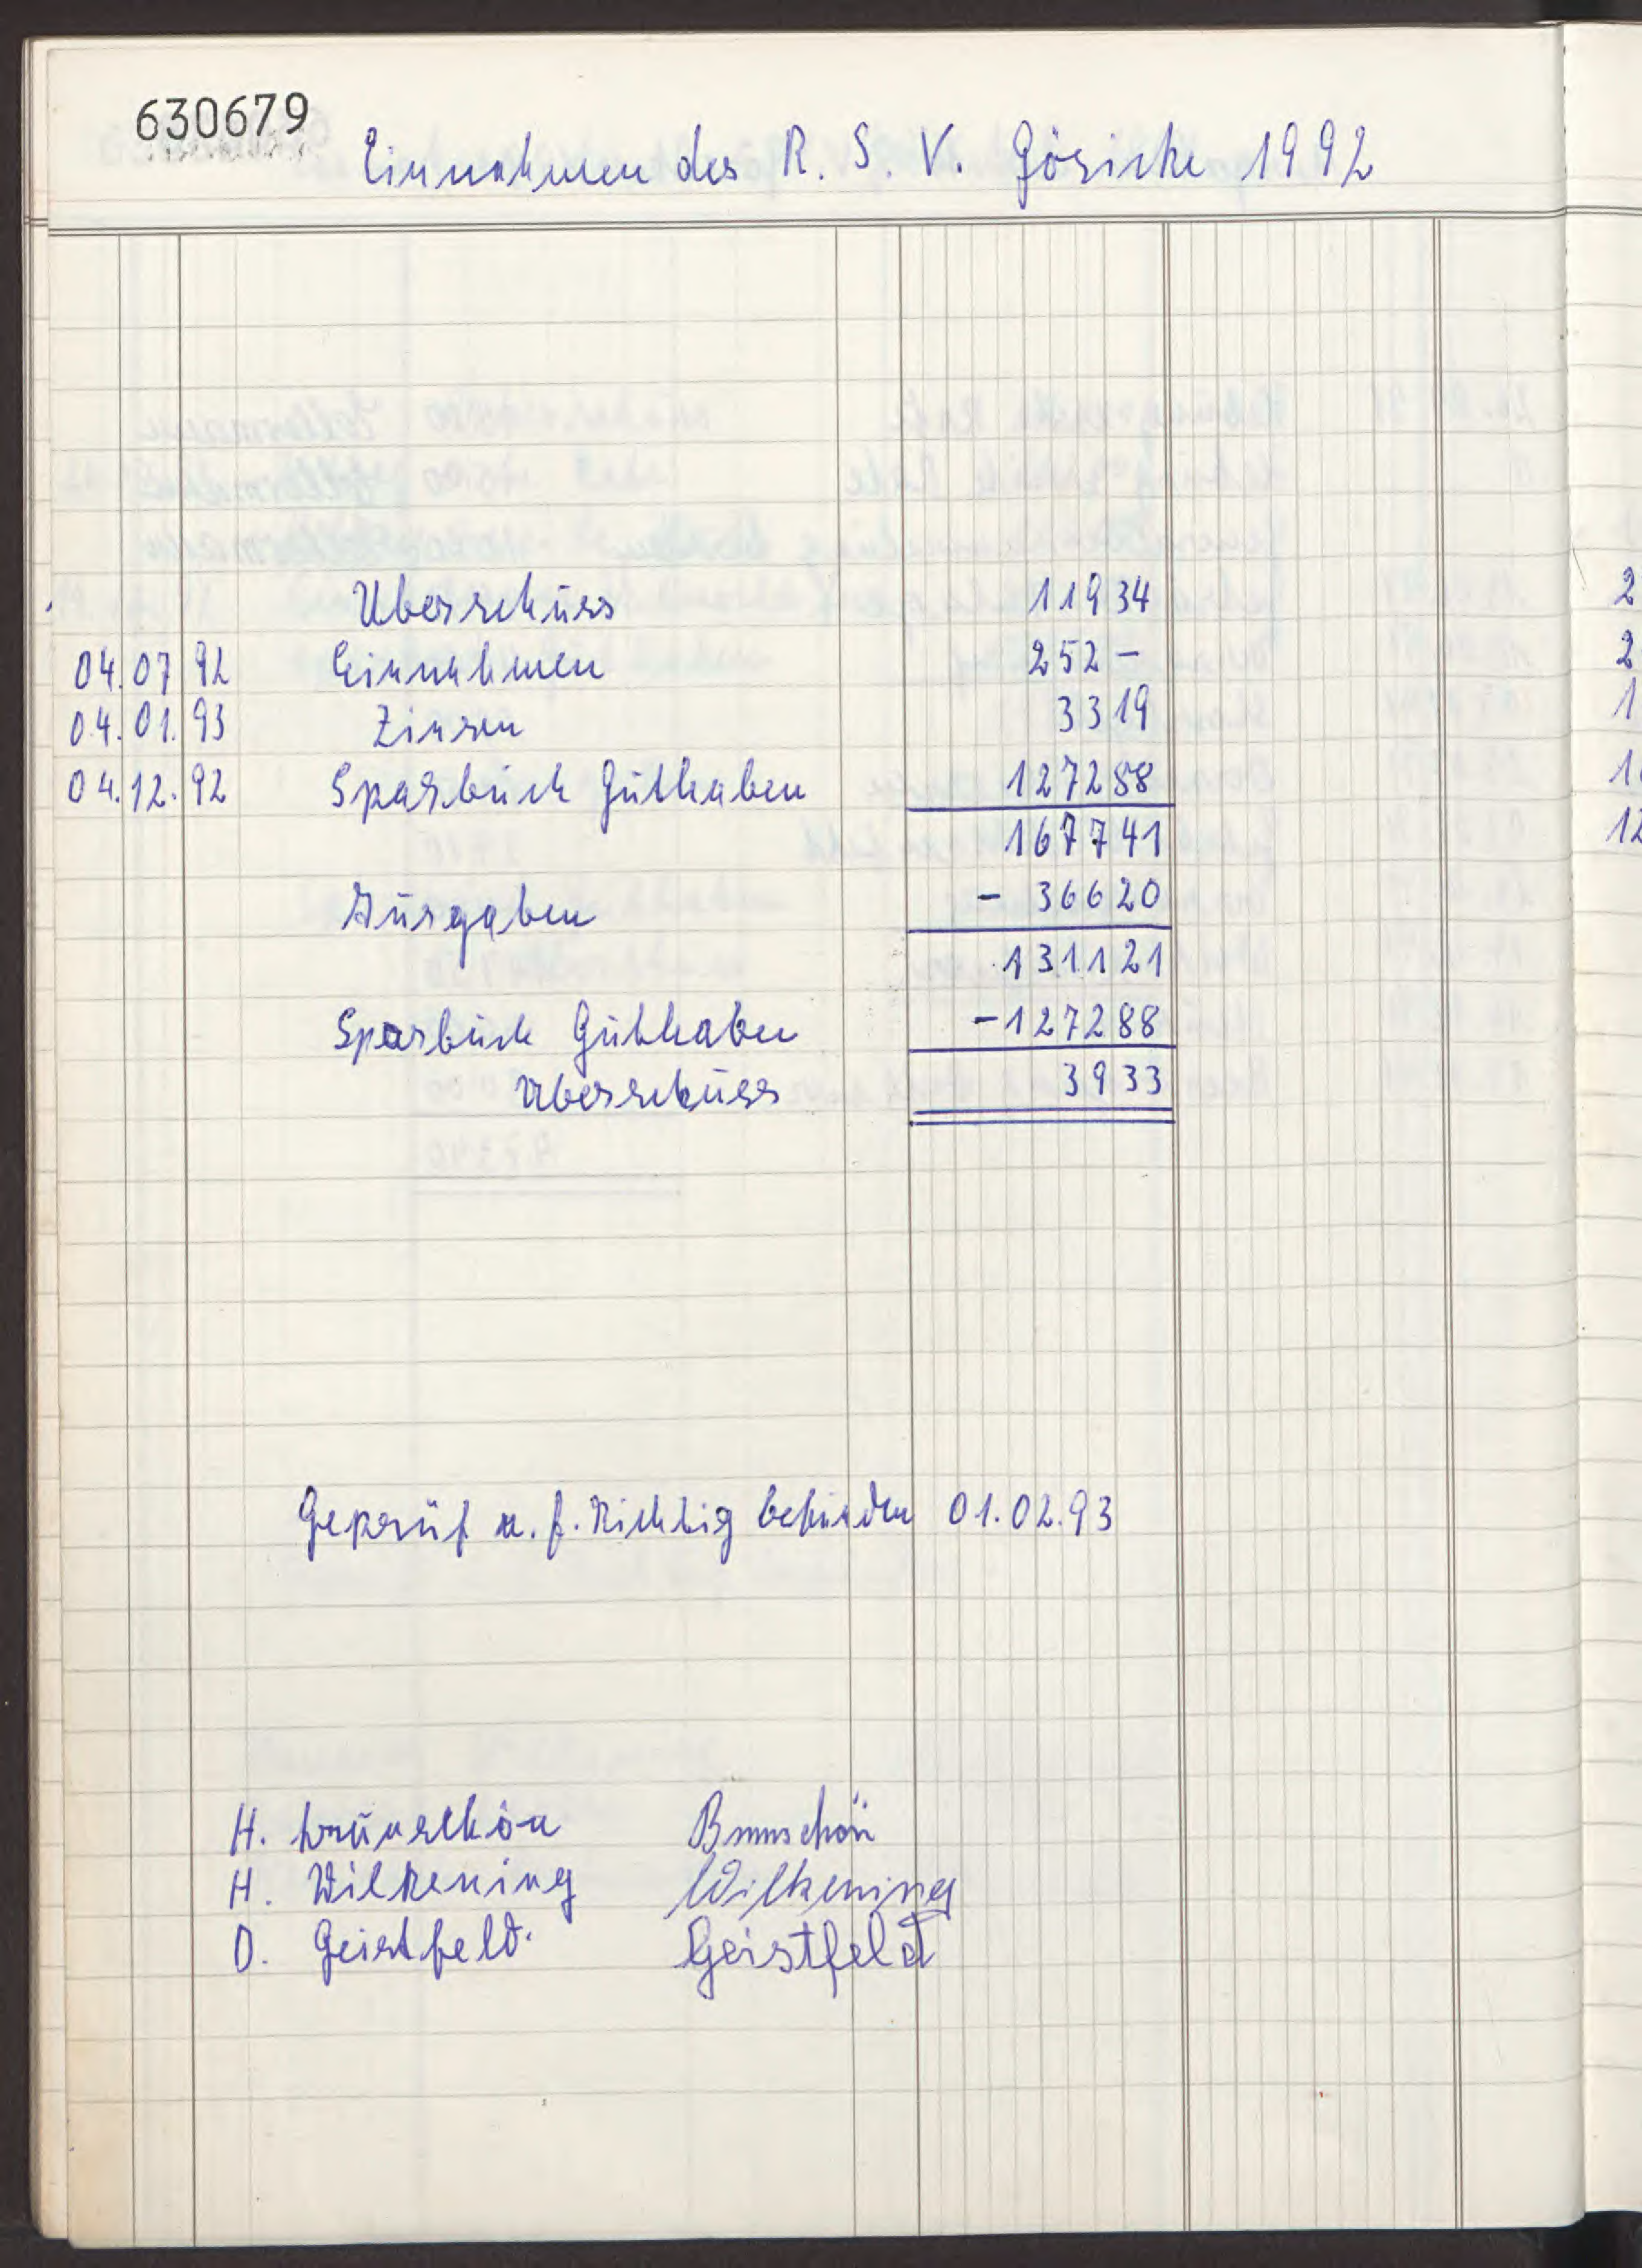 630679
Einnahmen des R. S. V. Göricke 1992
Überschuss 11934
04.07 92 Einnahmen 252 –
04.01.93 Zinsen 3319
04.12.92 Sparbuch Guthaben 127288
167741
Ausgaben – 36620
131121
Sparbuch Guthaben – 127288
Überschuss 3933
Geprüf u. f. Richtig befunden 01.02.93
H. Brünschön Brunschön
H. Wilkening Wilkening
O. Geistfeld. Geistfeld